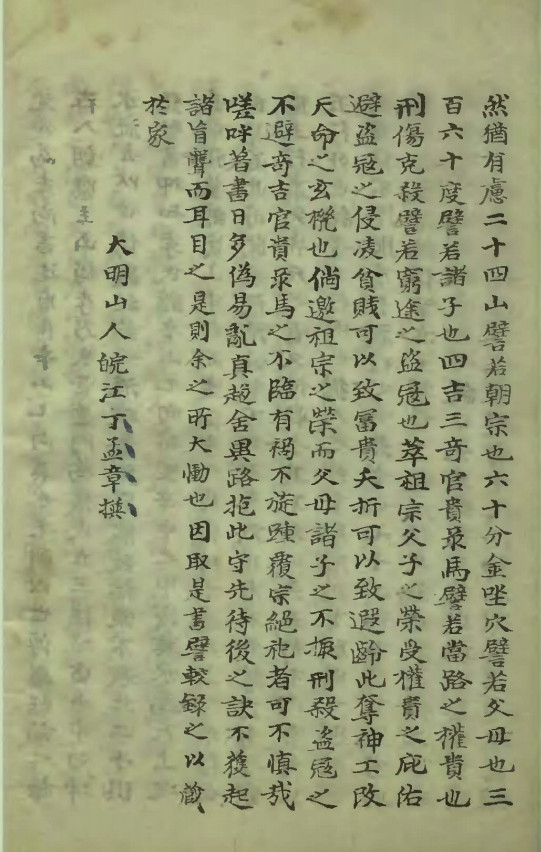 然猶有慮二十四山譬若朝宗也六十分金坐穴譬若父母也三
百六十度譬若諸子也四吉三竒官貴彔馬譬若當路之權貴也
刑傷克殺譬若窮途之盗冦也萃祖宗父子之榮受權貴之庇佑
避盗冦之侵凌貧賎可以致冨貴夭折可以致遐齡此奪神工改
天命之玄機也倘邀祖宗之榮而父母諸子之不振刑殺盗冦之
不避竒吉官貴彔馬之不臨有禍不旋踵覆宗絕祀者可不慎哉
嗟呼著書日多偽易亂真趨舍異路抱此守先待後之訣不獲起
諸盲聾而耳目之是則余之所大慟也因取是書讐較錄之以藏
於家
大明山人皖江丁孟章撰